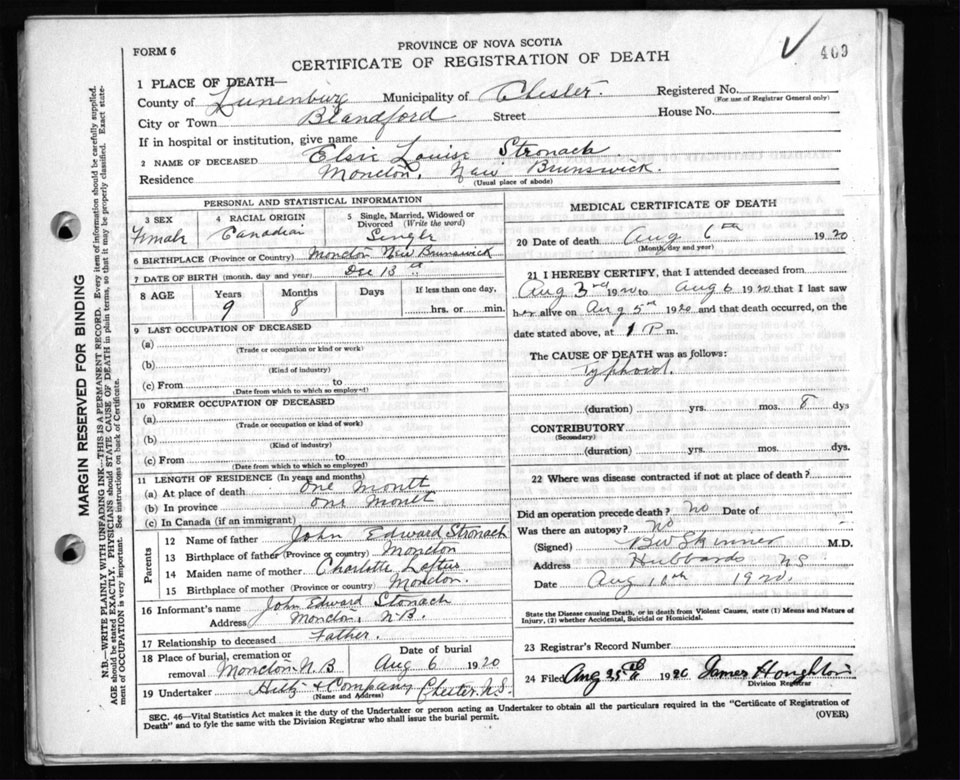 409
FORM 6
PROVINCE OF NOVA SCOTIA
CERTIFICATE OF REGISTRATION OF DEATH
1 PLACE OF DEATH—
County of Lunenburg Municipality of Chester Registered No.
(For use of Registrar General only)
City or Town Blandford Street House No.
If in hospital or institution, give name
2 NAME OF DECEASED Elsie Louise Stronach
Residence Moncton, New Brunswick.
(Usual place of abode)
PERSONAL AND STATISTICAL INFORMATION
3 SEX Female
4 RACIAL ORIGIN Canadian
5 Single, Married, Widowed or Divorced (Write the word) Single
6 BIRTHPLACE (Province or Country) Moncton New Brunswick
7 DATE OF BIRTH (month, day and year) Dec 13
8 AGE Years 9 Months 8 Days If less than one day, hrs. or min.
9 LAST OCCUPATION OF DECEASED
(a)
(Trade or occupation or kind or work)
(b)
(Kind of industry)
(c) From to
(Date from which to which so employed)
10 FORMER OCCUPATION OF DECEASED
(a)
(Trade or occupation or kind of work)
(b)
(Kind of industry)
(c) From to
(Date from which to which so employed)
11 LENGTH OF RESIDENCE (In years and months)
(a) At place of death One Month
(b) In province One Month
(c) In Canada (if an immigrant)
Parents
12 Name of father John Edward Stronach
13 Birthplace of father (Province or country) Moncton
14 Maiden name of mother Charlotte Loftus
15 Birthplace of mother (Province or country) Moncton.
16 Informant's name John Edward Stonach
Address Moncton, N.B.
17 Relationship to deceased Father.
18 Place of burial, cremation or removal Moncton N.B Date of burial Aug 6 1920
19 Undertaker & Company Chester N.S.
(Name and Address)
MEDICAL CERTIFICATE OF DEATH
20 Date of death Aug 6th 1920
(Month, day and year)
21 I HEREBY CERTIFY, that I attended deceased from
Aug 3rd 1920 to Aug 6 1920 that I last saw
her alive on Aug 5th 1920 and that death occurred, on the
date stated above, at 1 P m.
The CAUSE OF DEATH was as follows:
Typhoid.
(duration) yrs. mos. 8 dys
CONTRIBUTORY
(Secondary)
(duration) yrs. mos. dys.
22 Where was disease contracted if not at place of death?
Did an operation precede death? No Date of
Was there an autopsy? No
(Signed) Skinner M.D.
Address Hubbards NS
Date Aug 10th 1920.
State the Disease causing Death, or in death from Violent Causes, state (1) Means and Nature of
Injury, (2) whether Accidental, Suicidal or Homicidal.
23 Registrar's Record Number
24 Filed Aug 25th 1920 James Houghton
Division Registrar
SEC. 46—Vital Statistics Act makes it the duty of the Undertaker or person acting as Undertaker to obtain all the particulars required in the "Certificate of Registration of
Death" and to fyle the same with the Division Registrar who shall issue the burial permit.
(OVER)
MARGIN RESERVED FOR BINDING
N.B.—WRITE PLAINLY WITH UNFADING INK—THIS IS A PERMANENT RECORD. Every item of information should be carefully supplied.
AGE should be stated EXACTLY. PHYSICIANS should STATE CAUSE OF DEATH in plain terms, so that it may be properly classified. Exact state-
ment of OCCUPATION is very important. See instructions on back of Certificate.